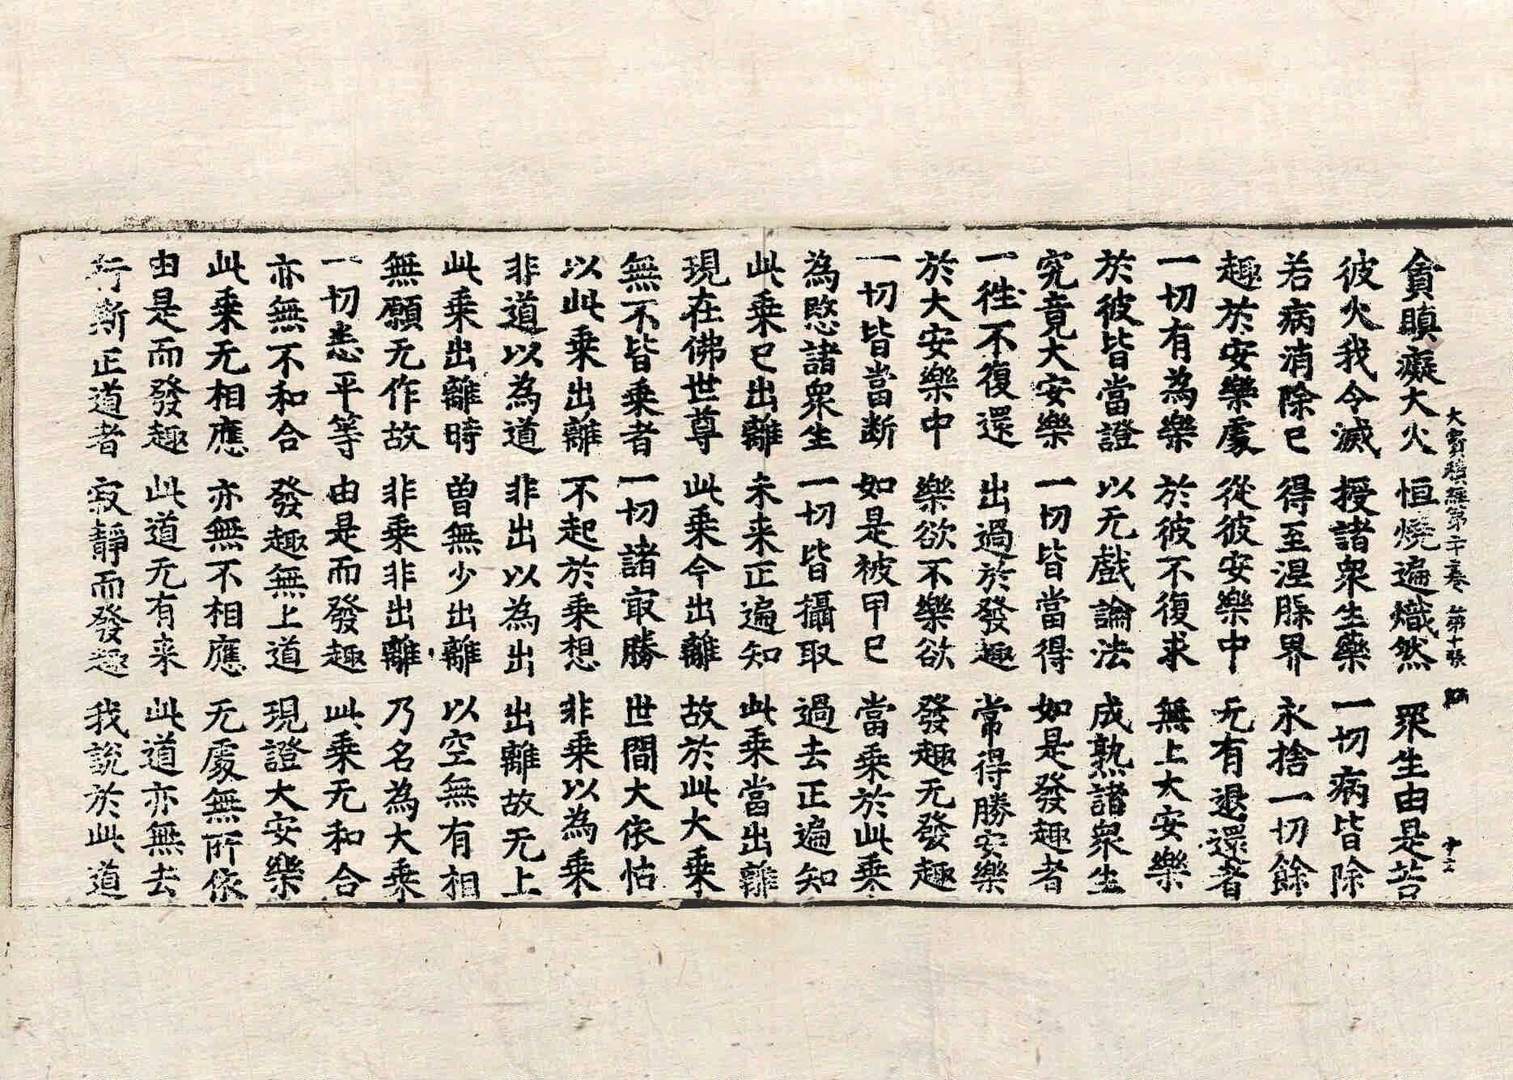 大寶積經第二十二卷 第十張
貪瞋癡大火 恒燒遍熾然 眾生由是苦
彼火我今滅 授諸眾生藥 一切病皆除
若病消除已 得至涅槃界 永捨一切餘
趣於安樂處 從彼安樂中 无有退還者
一切有為樂 於彼不復求 無上大安樂
於彼皆當證 以无戲論法 成熟諸眾生
究竟大安樂 一切皆當得 如是發趣者
一徃不復還 出過於發趣 常得勝安樂
於大安樂中 樂欲不樂欲 發趣无發趣
一切皆當断 如是被甲已 當乘於此乘
為愍諸眾生 一切皆攝取 過去正遍知
此乘已出離 未来正遍知 此乘當出離
現在佛世尊 此乘今出離 故於此大乘
無不皆乘者 一切諸最勝 世間大依怙
以此乘出離 不起於乘想 非乘以為乘
非道以為道 非出以為出 出離故无上
此乘出離時 曾無少出離 以空無有相
無願无作故 非乘非出離 乃名為大乘
一切悉平等 由是而發趣 此乘无和合
亦無不和合 發趣無上道 現證大安樂
此乘无相應 亦無不相應 无處無所依
由是而發趣 此道无有来 此道亦無去
行斯正道者 寂靜而發趣 我說於此道